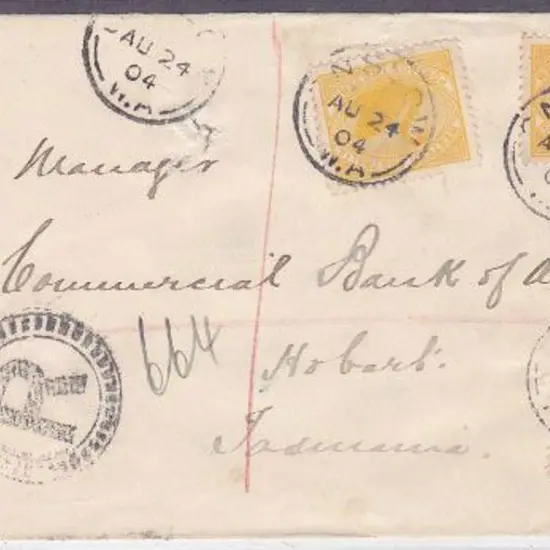 AU 24
04
W.A
AU 24
04
W.A
Manager
Commercial Bank of A
R
664
Hobart.
Tasmania.